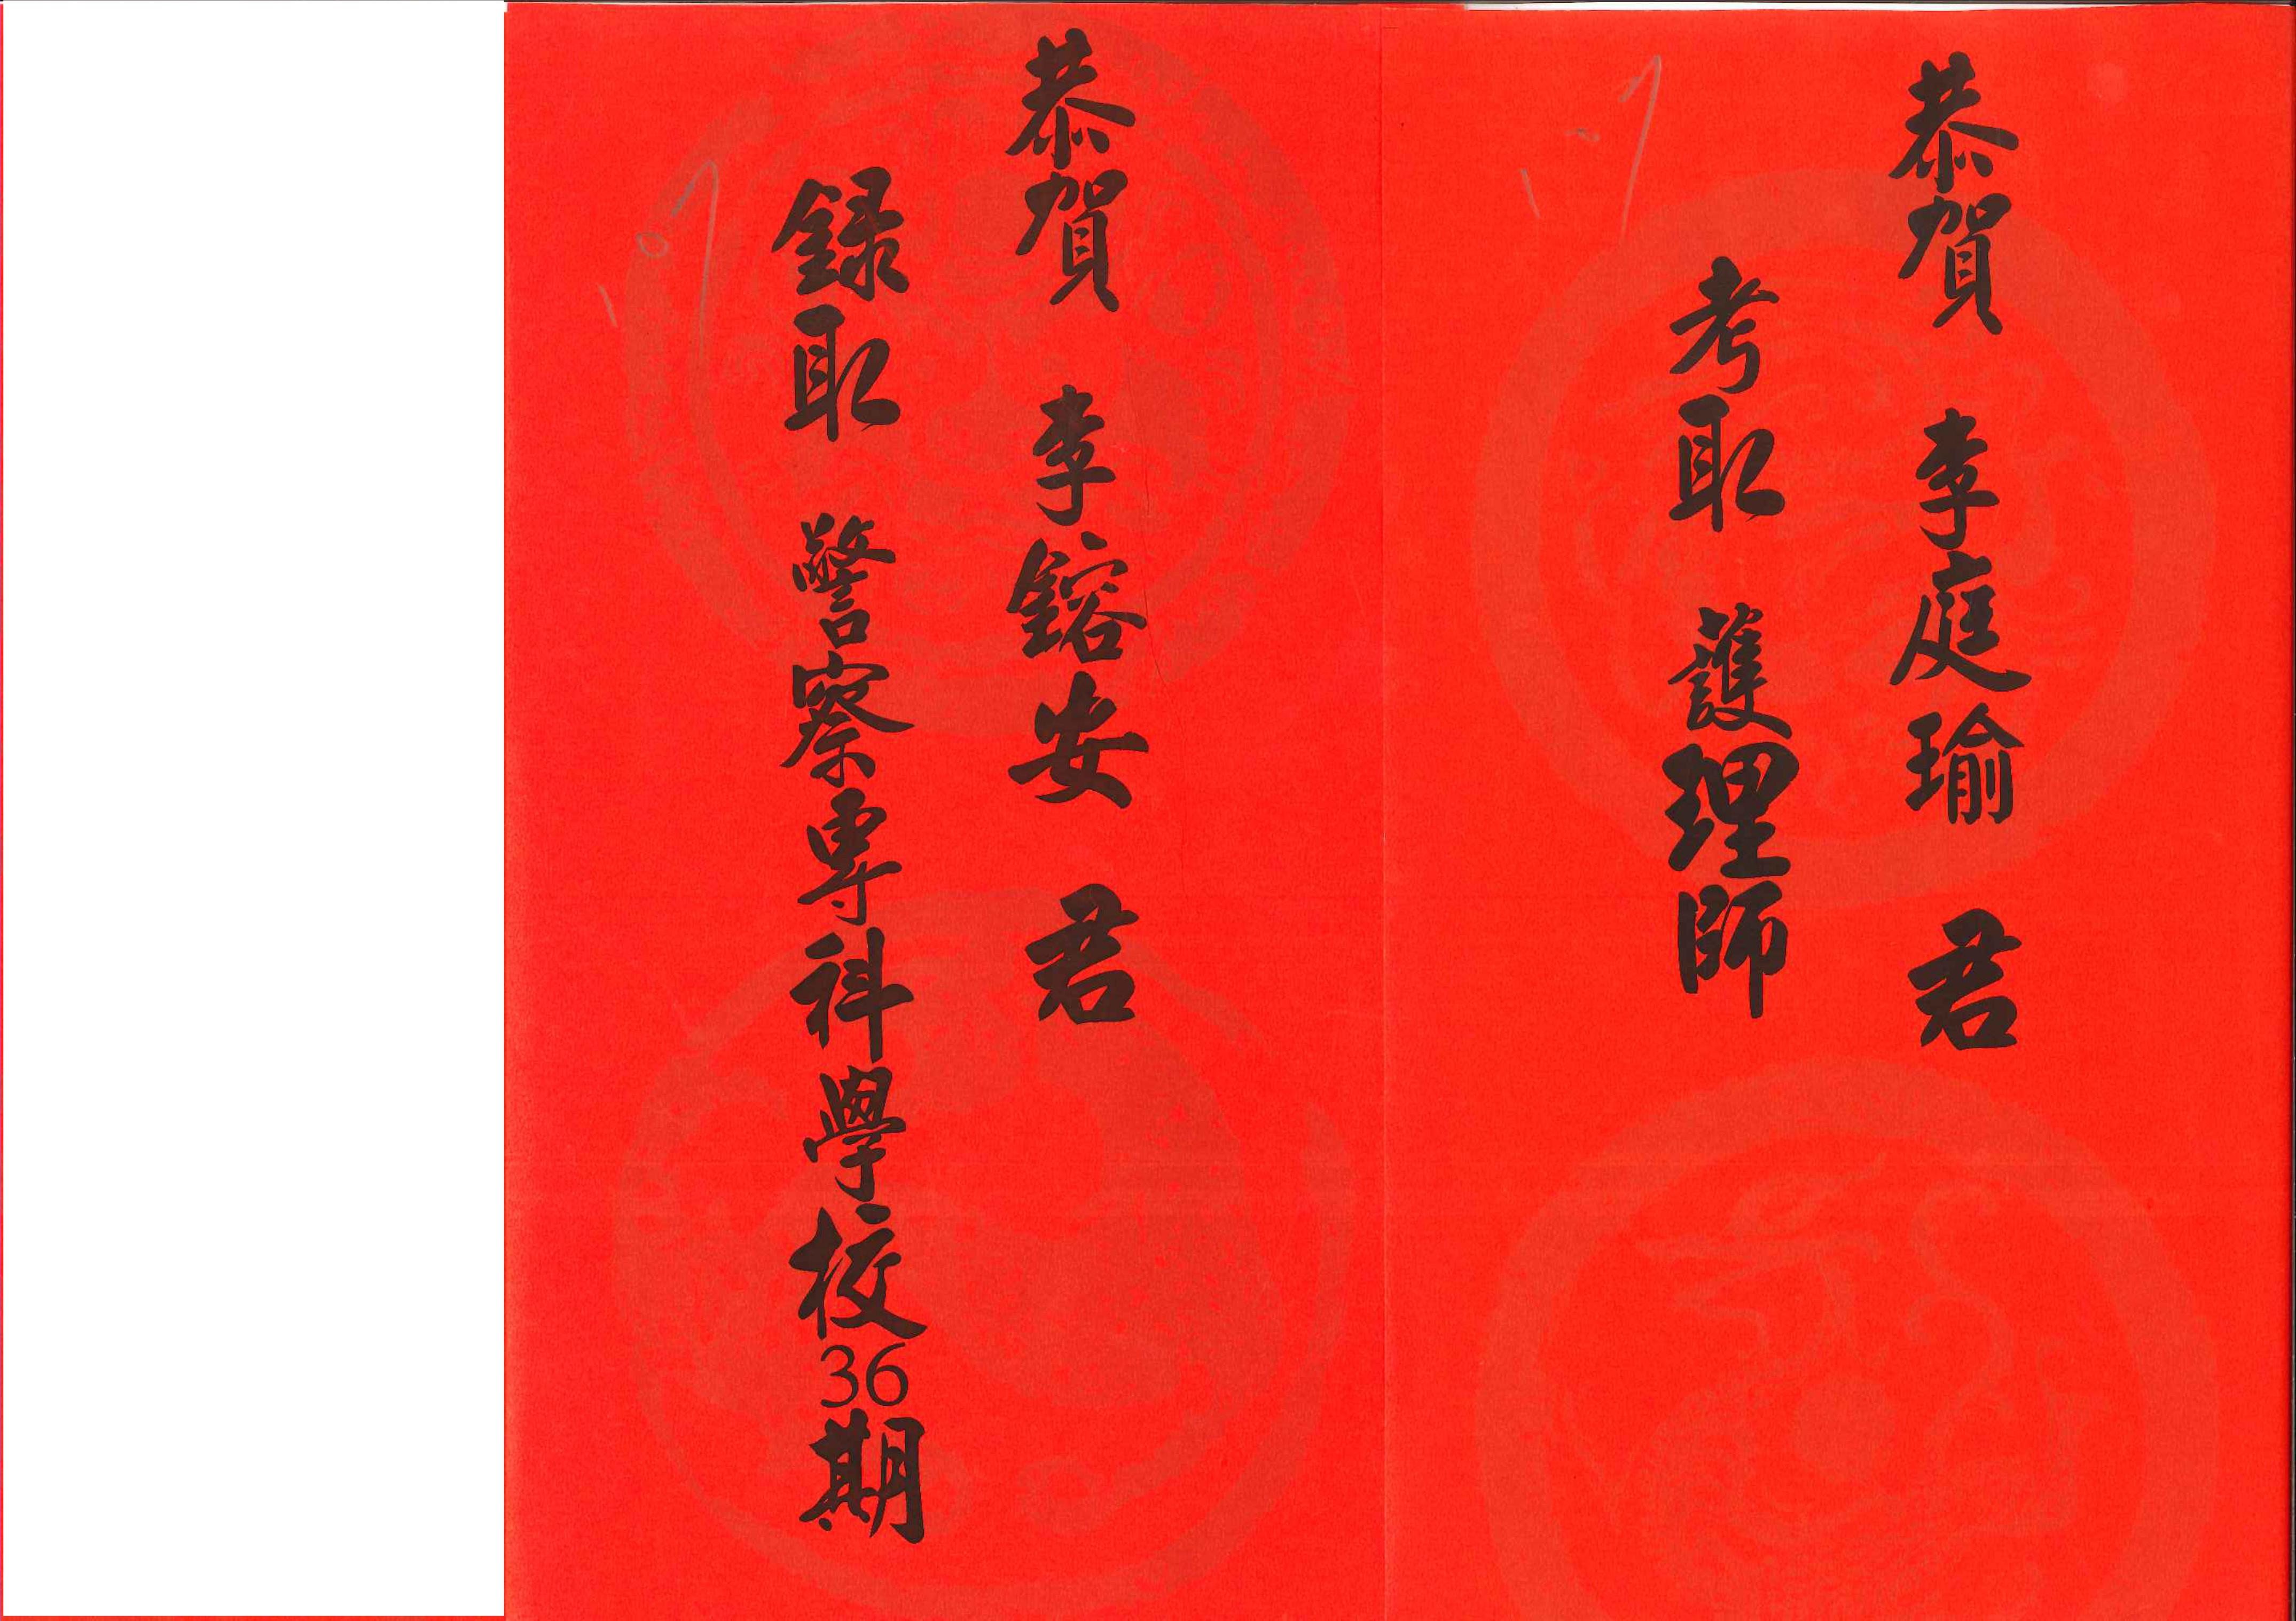 恭賀 李庭瑜 君
考取 護理師
恭賀 李鎔安 君
錄取 警察專科學校36期